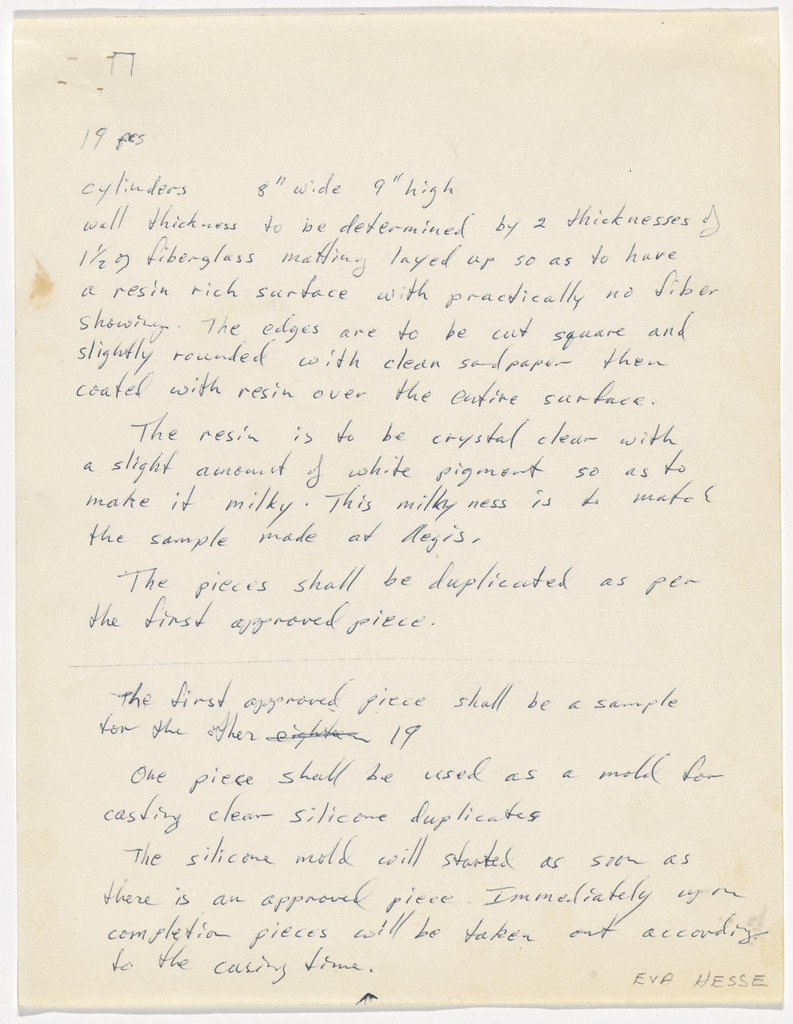 19 pcs
cylinders 8" wide 9" high
wall thickness to be determined by 2 thicknesses of
1 1/2 oz fiberglass matting layed up so as to have
a resin rich surface with practically no fiber
showing. The edges are to be cut square and
slightly rounded with clean sandpaper then
coated with resin over the entire surface.
The resin is to be crystal clear with
a slight amount of white pigment so as to
make it milky. This milkyness is to match
the sample made at Aegis.
The pieces shall be duplicated as per
the first approved piece.
The first approved piece shall be a sample
for the other eighteen 19
One piece shall be used as a mold for
casting clear silicone duplicates
The silicone mold will started as soon as
there is an approved piece. Immediately upon
completion pieces will be taken out according
to the curing time.
EVA HESSE